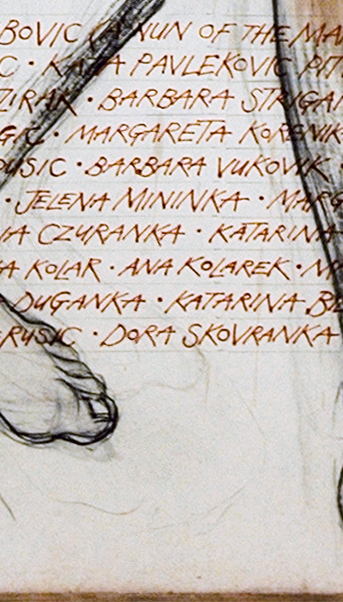 BOVIC (A NUN OF THE MA
C · KATA PAVLEKOVIC PIT
ZIRAK · BARBARA STRIGA
GIC · MARGARETA KORENIK
USIC · BARBARA VUKOVIK
· JELENA MININKA · MARG
IA CZURANKA · KATARINA
A KOLAR · ANA KOLAREK · M
DUGANKA · KATARINA BE
RUSIC · DORA SKOVRANKA